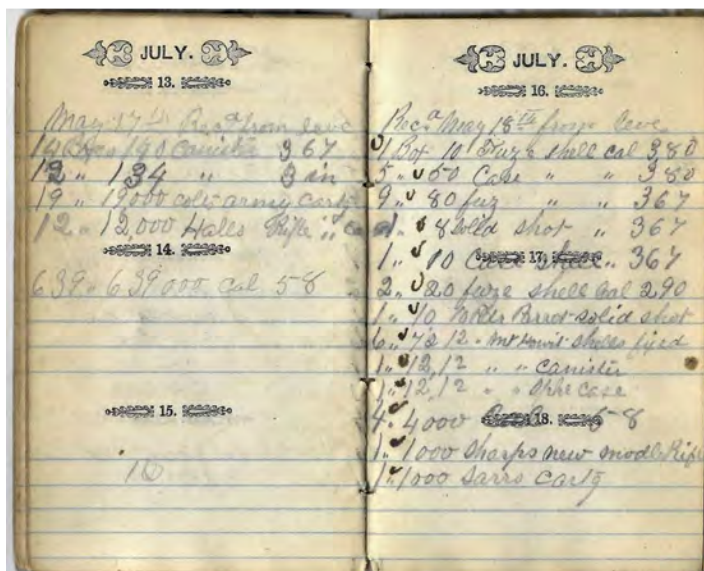 JULY.
13.
May 17th Recd from leve
14 Boxes 140 Canister 367
12 " 134 " 3 in
19 " 19000 colts army cartg
12 " 12,000 Halls Rifle "
14.
639 " 639000 Cal 58
15.
10
JULY.
16.
Recd May 18th from leve
1 Box 10 Fuze shell cal 380
5 " 50 Case " " 380
9 " 80 fuz " " 367
1 " 8 Solid shot " 367
17.
1 " 10 Case shell " 367
2 " 20 fuze shell Cal 290
1 " 10 Parrot solid shot
6 " 72 12 " Mt Howit shells fixed
1 " 12, 12 " " canister
1 " 12, 12 " " Sphe case
18.
4 " 4000 58
1 " 1000 Sharps new modle Rifle
1 " 1000 Sarro Cartg